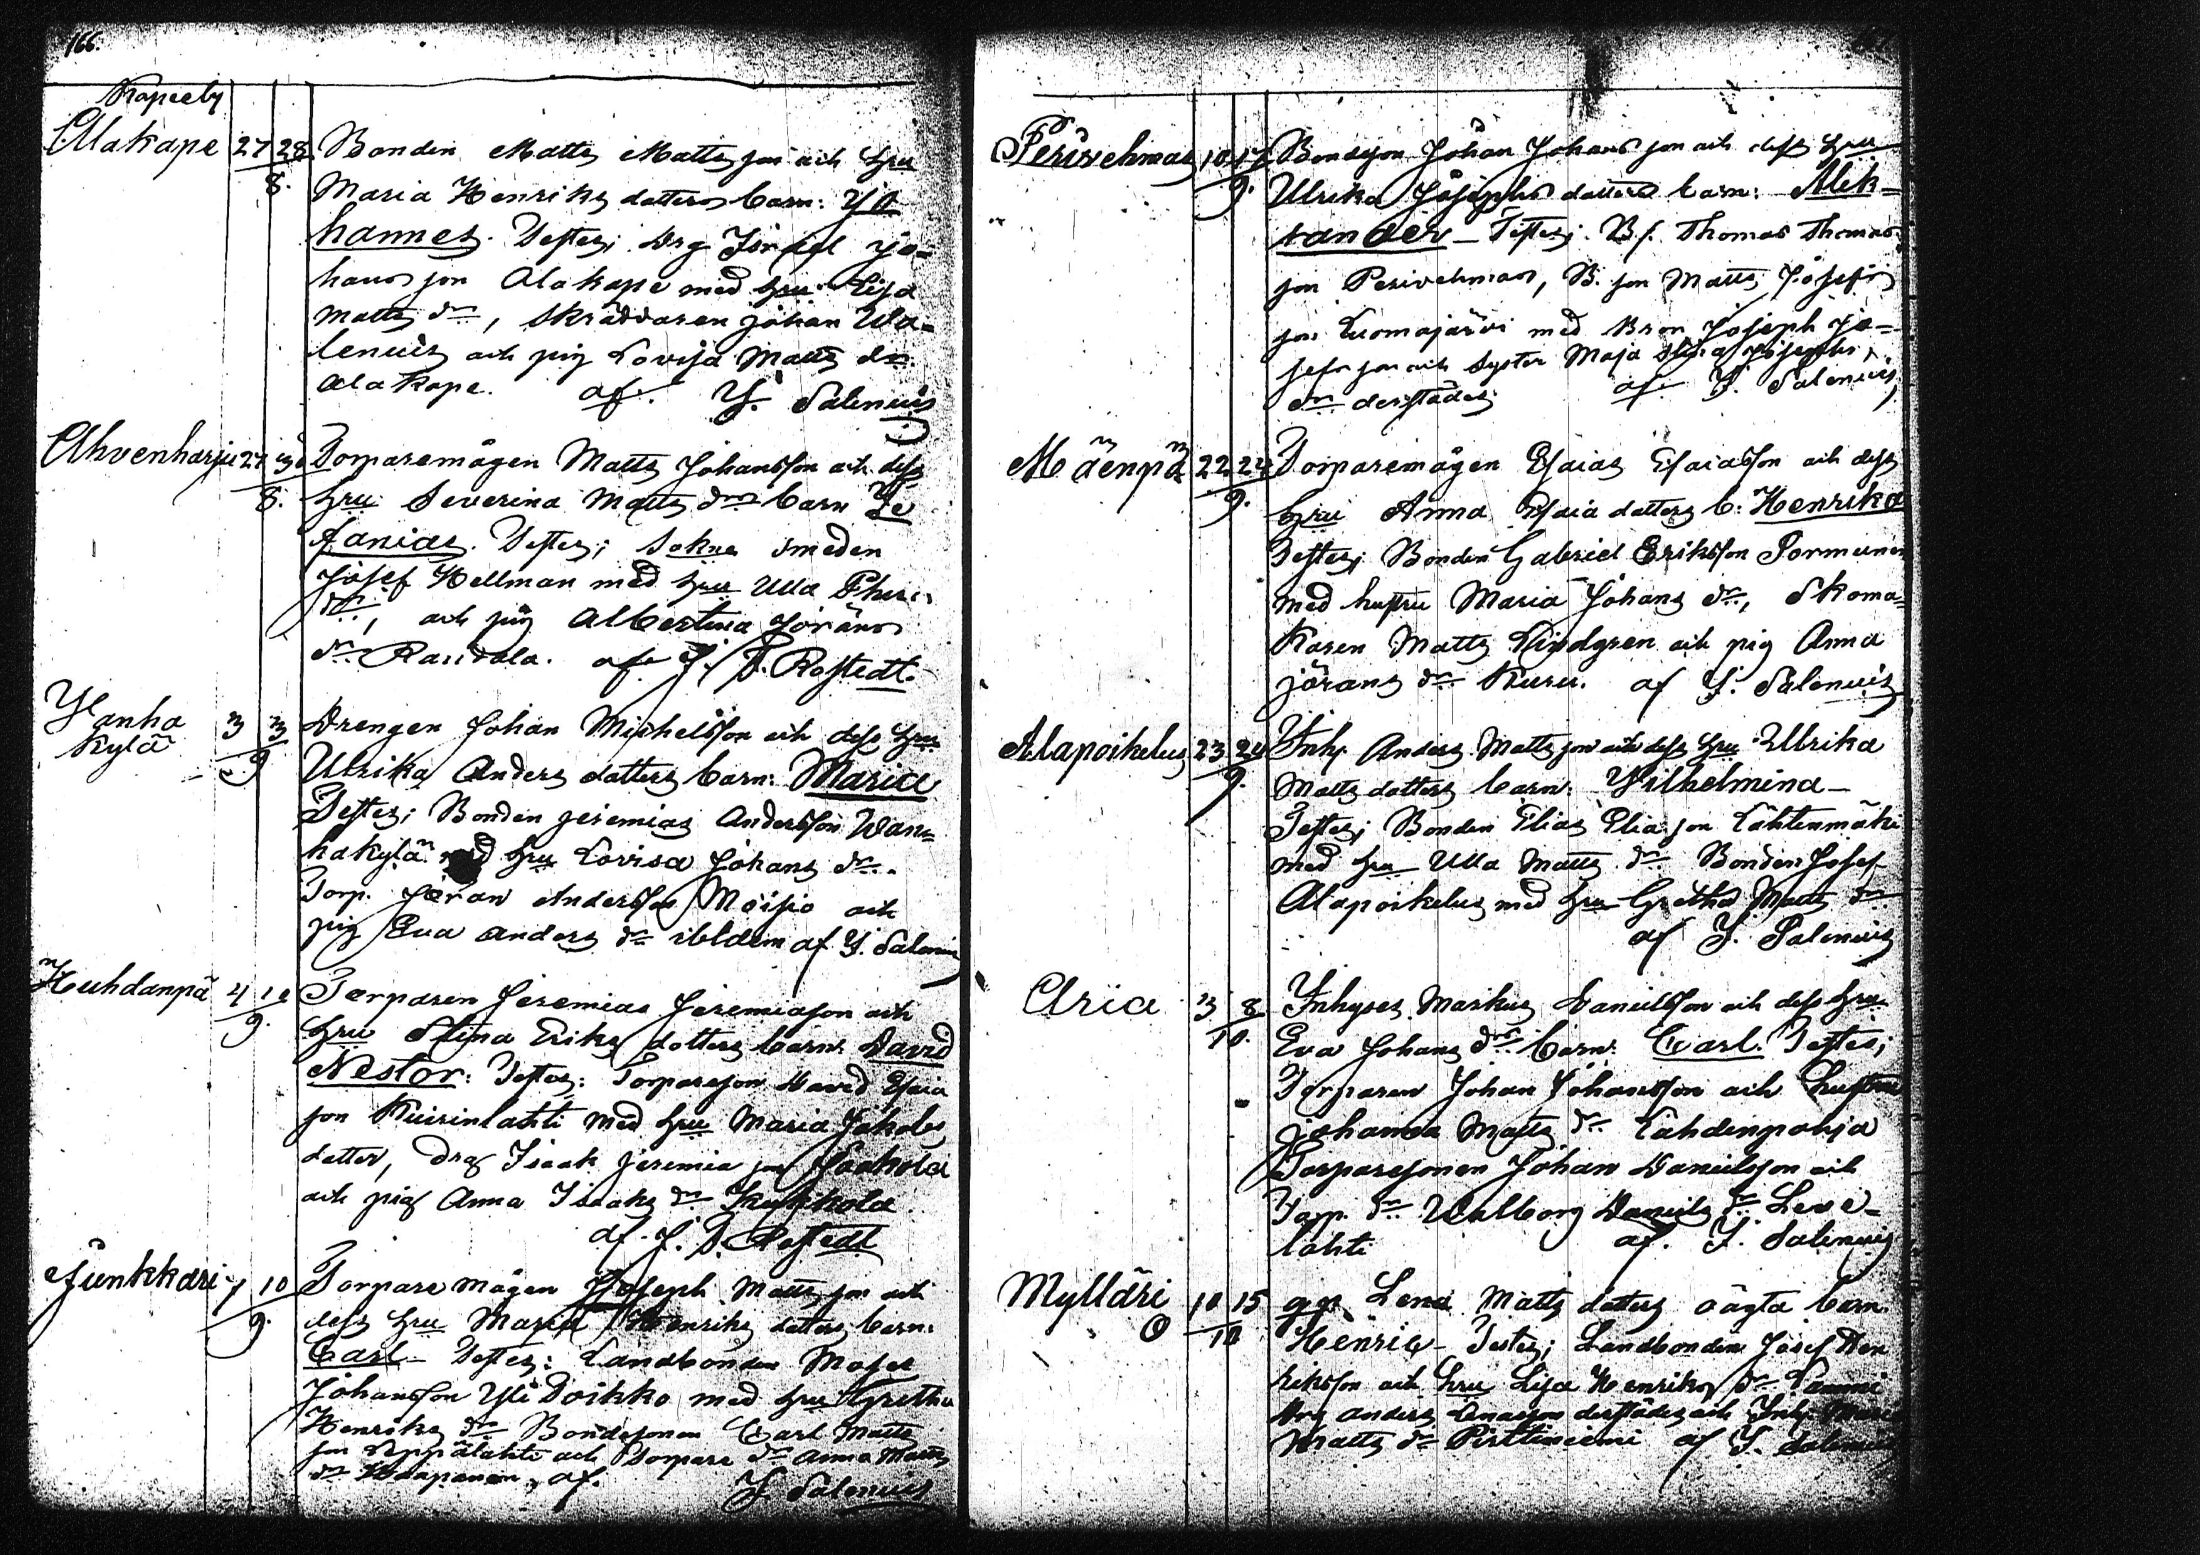 166.
Kapeeby
Alakape 27 28/8. Bonden Matts Mattsson och hru
Maria Henriks dotters barn: Jo
hannes. Testes; Drg Isråel Jo=
hans son Alakape med hru Lisa
Matts dr, Skräddaren Johan Wa=
lenius och pig Lovisa Matts dr
Alakape. af. J. Salenius
Ahvenharju 27 30/8. Torparemågen Matts Johansson och dess
hru Severina Matts dr barn Ste
fanias. Testes; Sokne smeden
Josef Hellman med hru Ulla
dr, och pig Albertina Jörans
dr Randala. af J. D. Rostedt.
Wanha 3 3/9 Drengen Johan Michelsson och dess hru
kylä Ulrika Anders dotters barn: Maria
Testes; Bonden Jeremias Andersson Wan=
hakylä med hru Lovisa Johans dr.
Torp. Jöran Andersson Moisio och
pig Eva Anders dr ibidem af J. Salenius
Huhdanpä 4 10/9. Torparen Jeremias Jeremiason och
hru Stina Eriks dotters barn: David
Nestor: Testes: Torpareson David Esaia
son Kuirinlahti med hru Maria Jakobs
dotter, drg Isaak Jeremia son
och pig Anna Isaaks dr
af. J. D. Rostedt
Junkkari 7 10/9. Torpare mågen Joseph Matts son och
dess hru Maria Henriks dotters barn:
Carl. Testes: Landbonden Moses
Johansson Yli Poikko med hru Gretha
Henriks dr Bondesonen Carl Matts
son och Torpare dr Anna Matts
dr Haapanen, af. J. Salenius
Perivehmas 10 17/9. Bondeson Johan Johans son och dess hru
Ulrika Josephs dotters barn: Alek=
sander – Testes; B.s. Thomas Thomas
son Perivehmas, B. son Matts Josefs
son Luomajärvi med Bron Joseph Jo=
sefs son och Syster Maja Stina Josephs
dr derstädes. af J. Salenius
Mäenpä 22 24/9. Torparemågen Esaias Esaiasson och dess
hru Anna Esaia dotters b: Henrika
Testes; Bonden Gabriel Eriksson Pormunen
med hustru Maria Johans dr, Skoma=
karen Matts Lindgren och pig Anna
Jörans dr Kuru. af J. Salenius
Alapoikelus 23 24/9. Inh. Anders Matts son och dess hru Ulrika
Matts dotters barn: Wilhelmina –
Testes; Bonden Elias Elia son Lähtenmäki
med hru Ulla Matts dr Bonden Josef
Alapoikelus med hru Gretha Matts dr
af J. Salenius
Aria 3 8/10. Inhyses Markus Danielsson och dess hru
Eva Johans drs barn: Carl. Testes;
Torparen Johan Johansson och hustru
Johanna Matts dr Lahdenpohja
Torparesonen Johan Danielsson och
Torp. dr Walborg Daniels dr Leve=
lahti af. J. Salenius
Mylläri 10 15/10 qp. Lena Matts dotters oägta barn
O Henric – Testes; Landbonden Josef Hen
riksson och hru Lisa Henriks dr Lammi
Drg Anders derstädes och Inh. Maria
Matts dr Pirttiniemi af J. Salenius